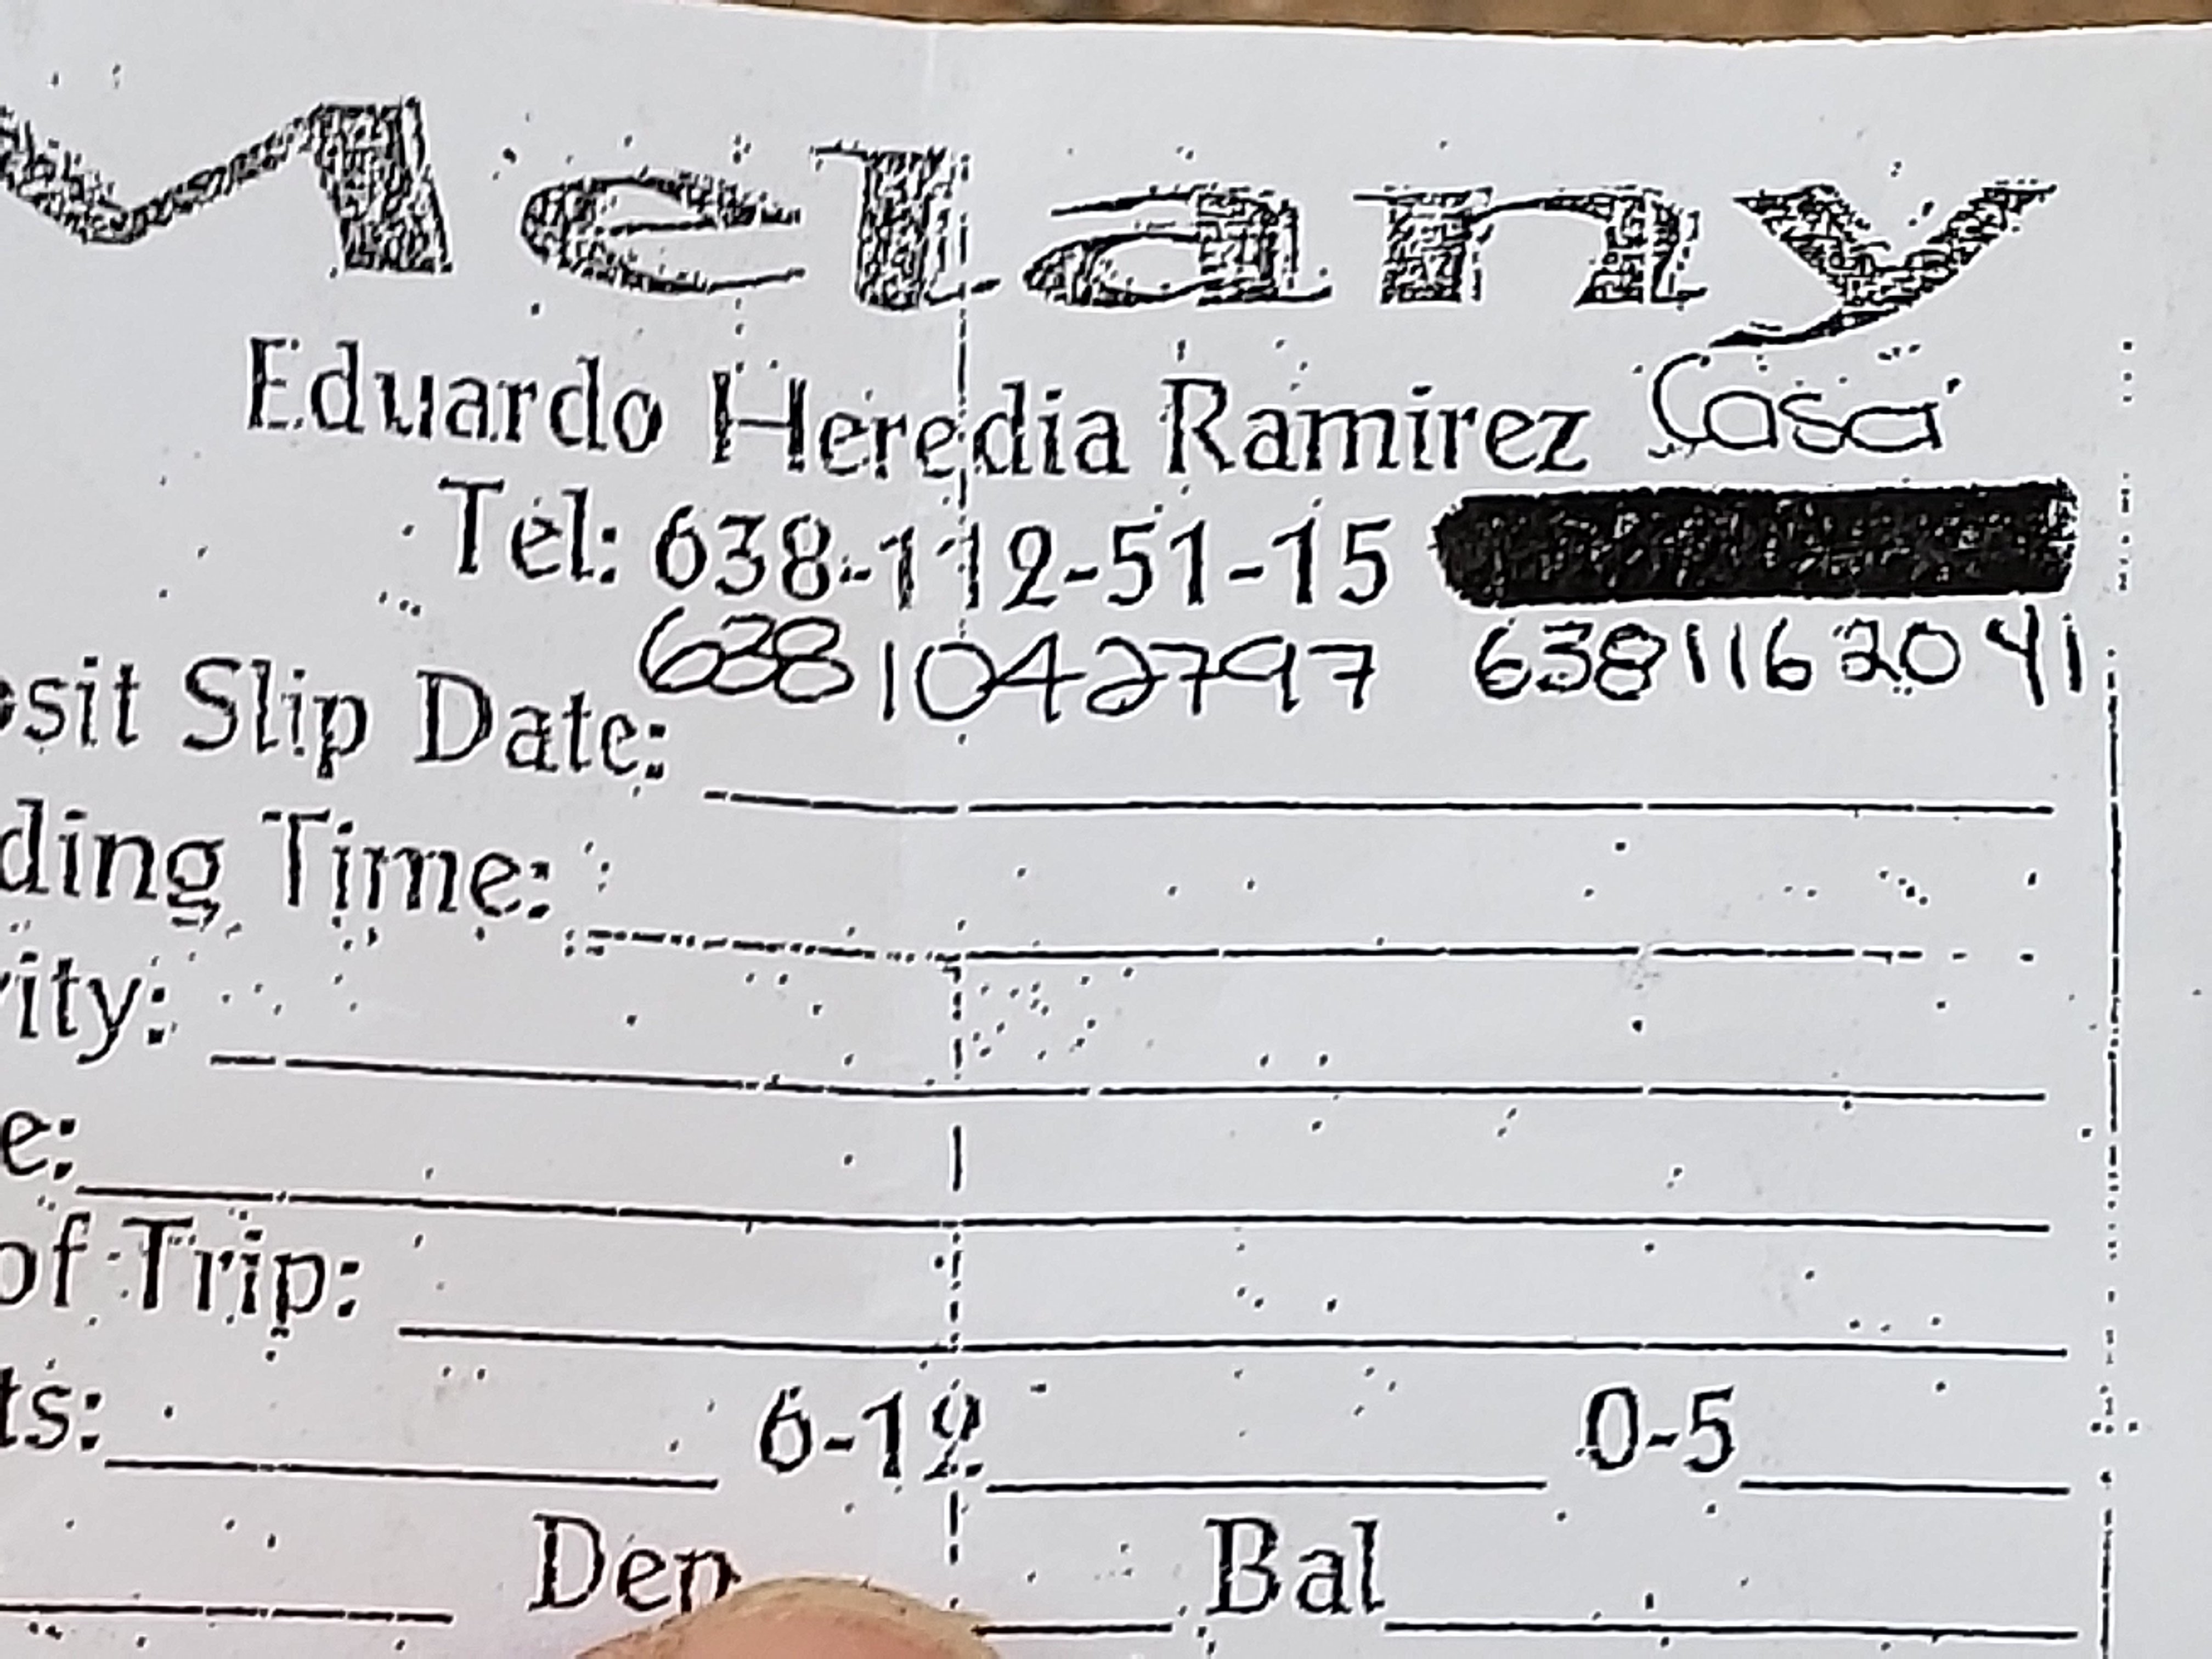 Melany
Eduardo Heredia Ramirez Casa
Tel: 638-112-51-15
638 1042797 638 116 20 41
Slip Date:
Time:
of Trip:
6-12 0-5
Bal